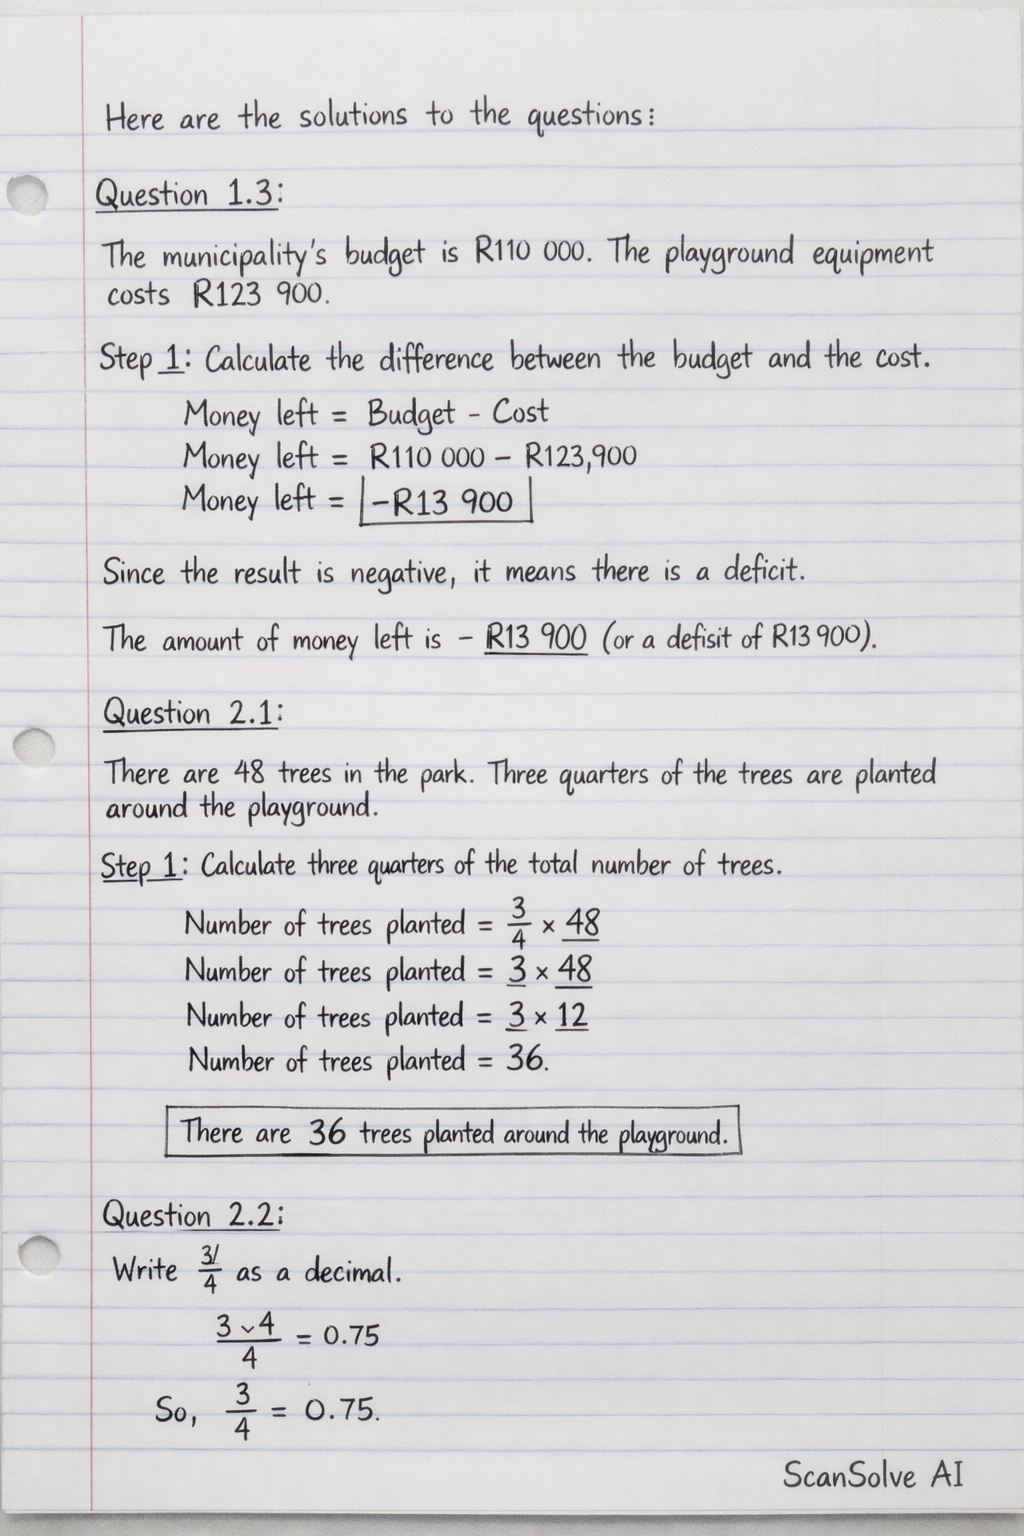 Here are the solutions to the questions:
Question 1.3:
The municipality's budget is R110 000. The playground equipment
costs R123 900.
Step 1: Calculate the difference between the budget and the cost.
Money left = Budget - Cost
Money left = R110 000 – R123,900
Money left = -R13 900
Since the result is negative, it means there is a deficit.
The amount of money left is - R13 900 (or a defisit of R13 900).
Question 2.1:
There are 48 trees in the park. Three quarters of the trees are planted
around the playground.
Step 1: Calculate three quarters of the total number of trees.
Number of trees planted = 3/4 × 48
Number of trees planted = 3 × 48
Number of trees planted = 3 × 12
Number of trees planted = 36.
There are 36 trees planted around the playground.
Question 2.2:
Write 3/4 as a decimal.
3 ⌄ 4 / 4 = 0.75
So, 3/4 = 0.75.
ScanSolve AI